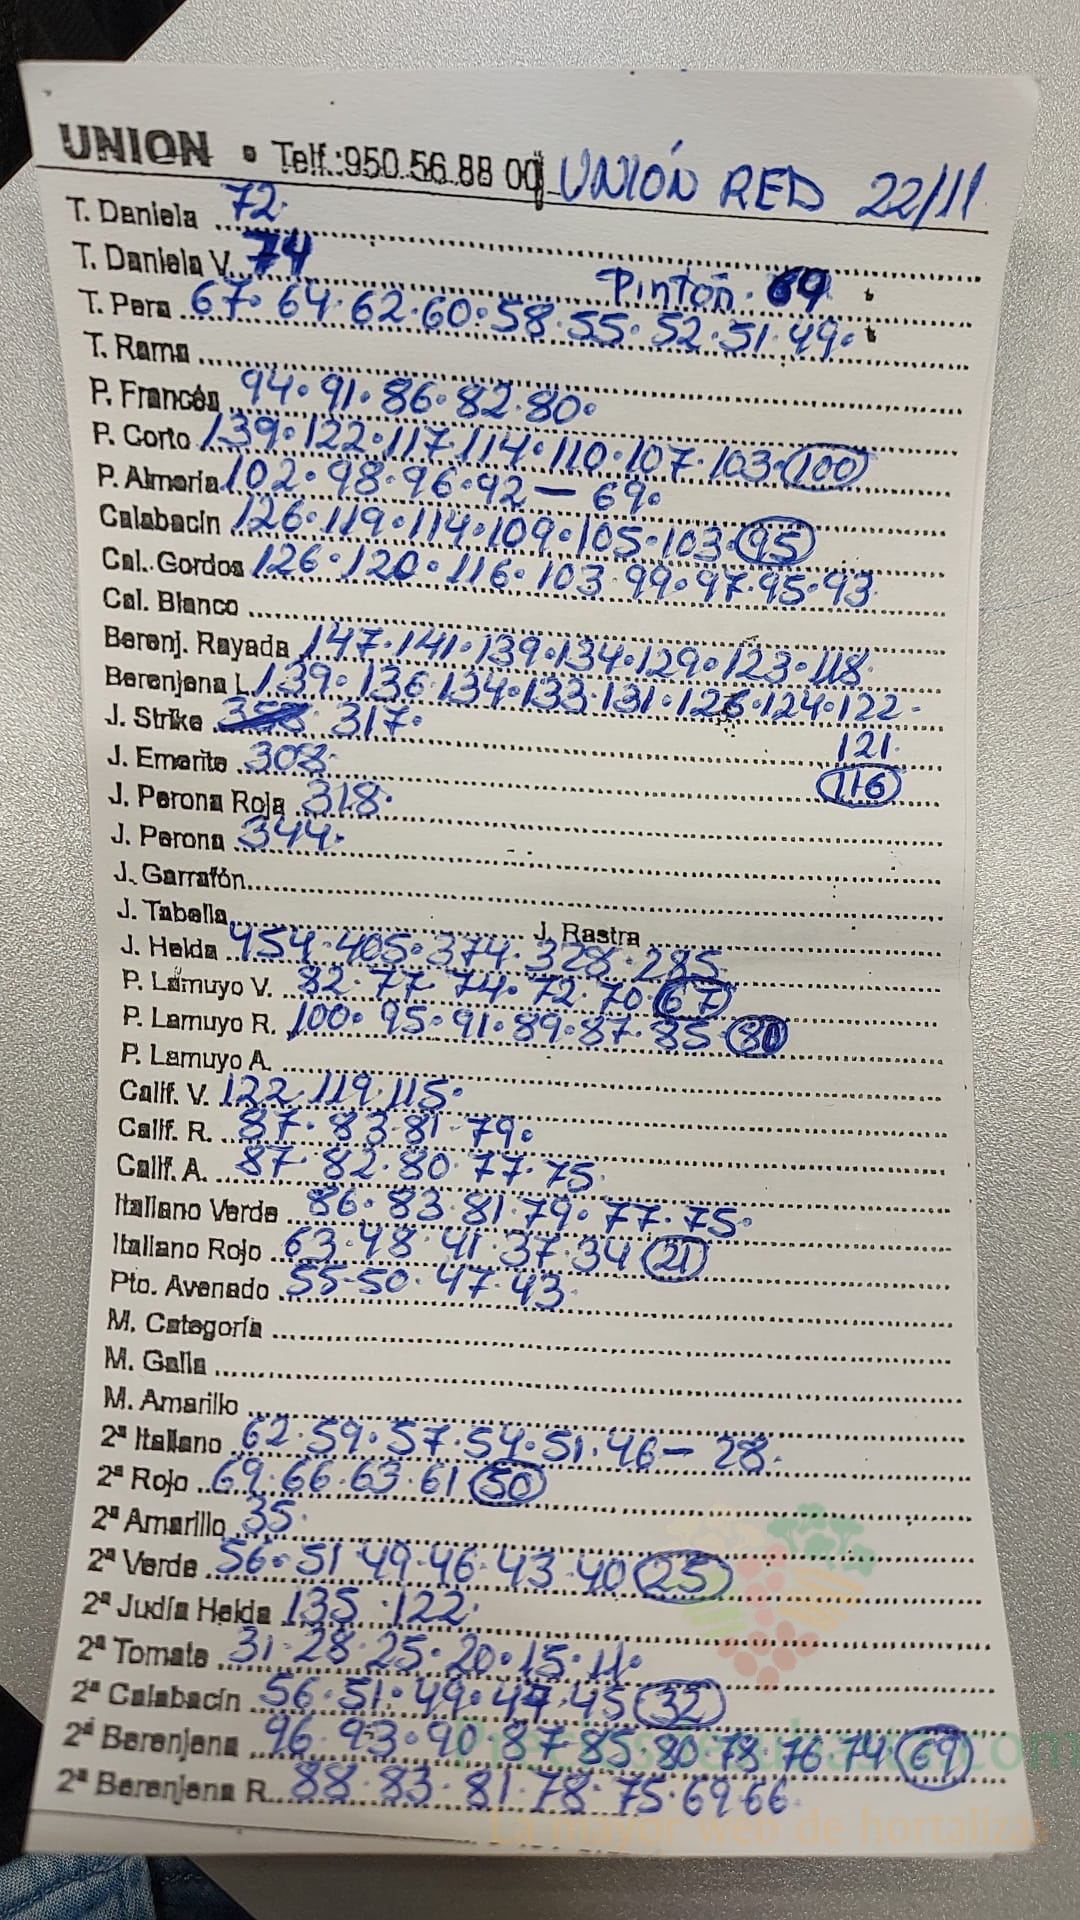 UNION • Telf.:950.56.88 00 UNIÓN RED 22/11
T. Daniela 72.
T. Daniela V. 74
Pintón. 69
T. Pera 67. 64. 62. 60. 58. 55. 52. 51. 49.
T. Rama
P. Francés 94. 91. 86. 82. 80.
P. Corto 139. 122. 117. 114. 110. 107. 103. 100
P. Almería 102. 98. 96. 92 — 69.
Calabacín 126. 119. 114. 109. 105. 103. 95
Cal. Gordos 126. 120. 116. 103. 99. 97. 95. 93.
Cal. Blanco
Berenj. Rayada 147. 141. 139. 134. 129. 123. 118.
Berenjena L. 139. 136. 134. 133. 131. 126. 124. 122.
121.
116
J. Strike 317.
J. Emerite 308.
J. Perona Roja 318.
J. Perona 344.
J. Garrafón
J. Tabella J. Rastra
J. Helda 454. 405. 374. 328. 285.
P. Lamuyo V. 82. 77. 74. 72. 70 67
P. Lamuyo R. 100. 95. 91. 89. 87. 85 80
P. Lamuyo A.
Calif. V. 122. 119. 115.
Calif. R. 87. 83. 81. 79.
Calif. A. 87. 82. 80. 77. 75.
Italiano Verde 86. 83. 81. 79. 77. 75.
Italiano Rojo 63. 48. 41. 37. 34 21
Pto. Avenado 55. 50. 47. 43.
M. Categoría
M. Galia
M. Amarillo
2ª Italiano 62. 59. 57. 54. 51. 46 — 28.
2ª Rojo 69. 66. 63. 61 50
2ª Amarillo 35.
2ª Verde 56. 51. 49. 46. 43. 40 25
2ª Judía Helda 135. 122.
2ª Tomate 31. 28. 25. 20. 15. 11.
2ª Calabacín 56. 51. 49. 47. 45 32
2ª Berenjena 96. 93. 90. 87. 85. 80. 78. 76. 74. 69
2ª Berenjena R. 88. 83. 81. 78. 75. 69. 66.
La mayor web de hortalizas